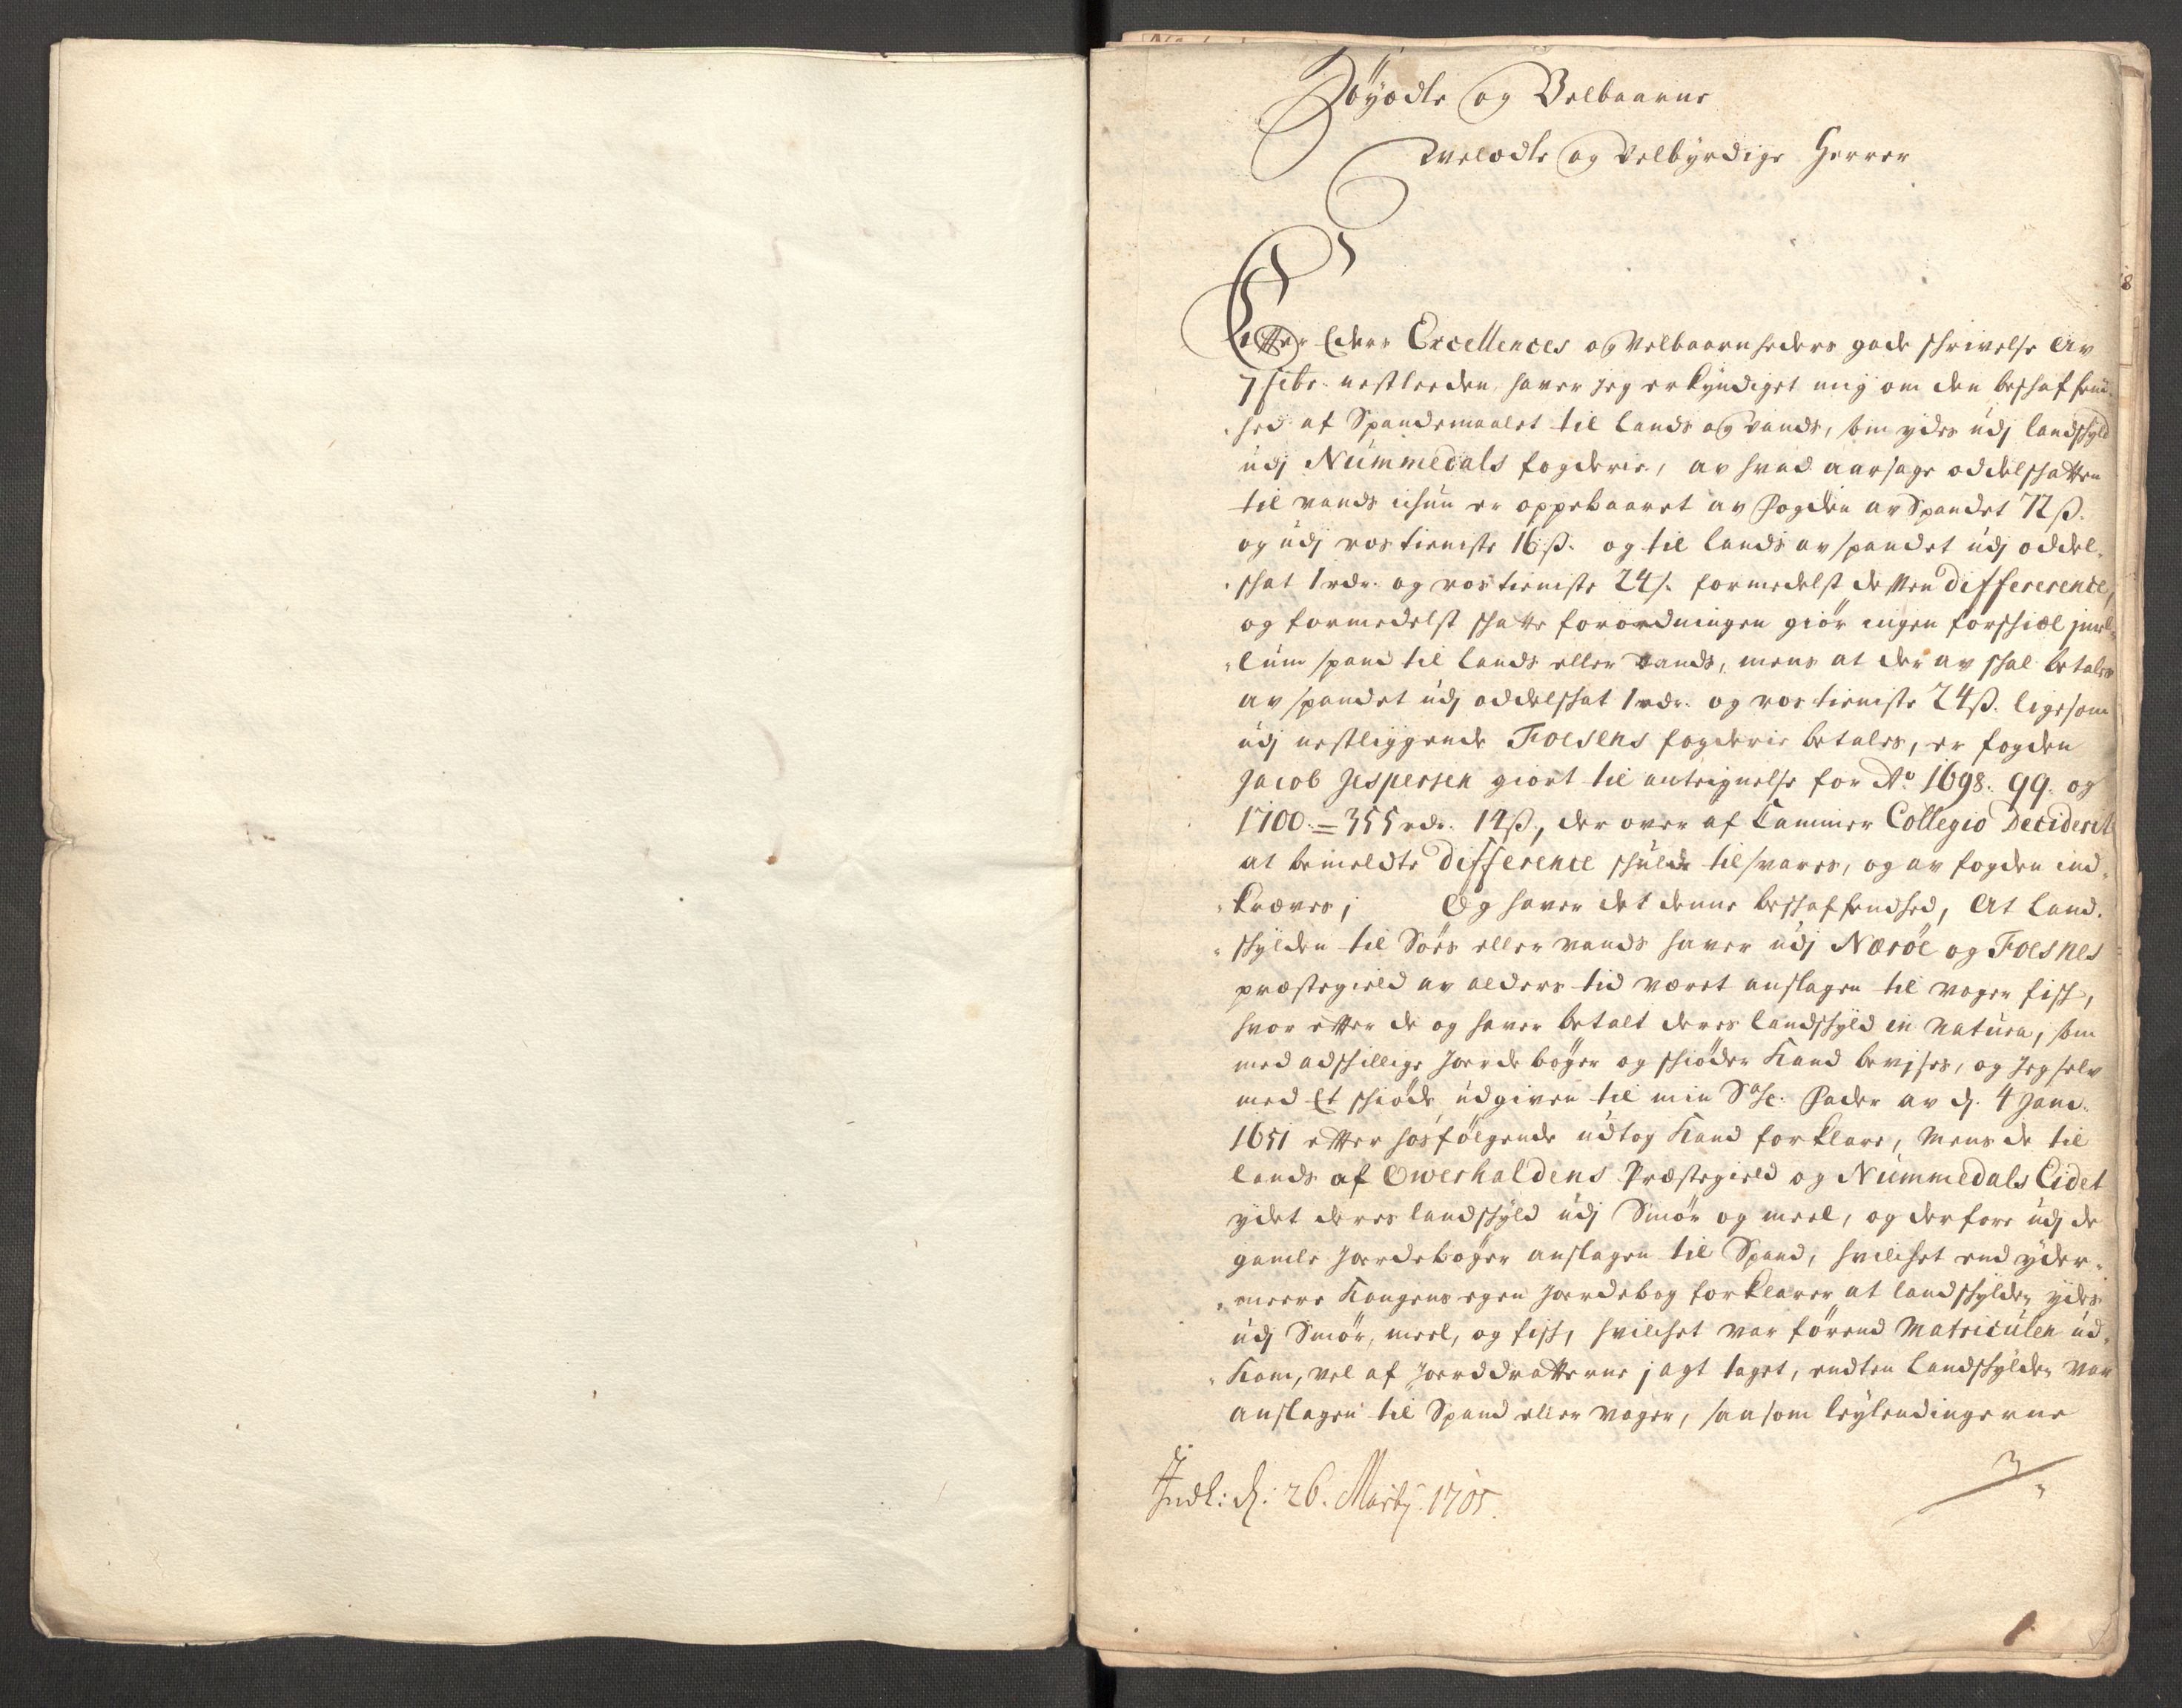 Höyædle og Velbaarne
Velædle og Velbyrdige Herrer
Efter Eders Excellences og Velbaarenheders gode schrivelse av
7 febr. nestleeden haver jeg erkyndiget mig om den beschaffen-
hed af Spandemaalet til lands og vands, som ydes udj landschyld
udj Nummedals fogderie, av hvad aarsage oddelschatten
til vands ichun er oppebaaret av Fogden av Spandet 72 ß.
og udj rostieniste 16 ß. og til lands av spandet udj oddel-
schat 1 rdr. og rostieniste 24 ß. formedelst dessen differerence,
og formedelst schatte forordningen giør ingen forschiæl jmel-
lum spand til lands eller vands, mens at der av schal betales
av spandet udj oddelschat 1 rdr. og rostieniste 24 ß. ligesom
udj nestliggende Foesens fogderie betales, er fogden
Jacob Jespersen giort til antegnelse for Ao 1698. 99. og
1700 = 355 rdr. 12 ß., der over af Cammer Collegio Deciderit
at bemeldte difference schulde tilsvares, og av fogden ind-
kræves; Og haver det denne beschaffendhed, At land-
schylden til Søes eller vands haver udj Nærøe og Foesnes
præstegield av alders tid været anslagen til voger fisch,
hvor efter de og haver betalt deres landschyld in natura, som
med adschillige Jorde bøger og schiøder kand bevjses, og Jeg selv
med Et schiøde udgiven til min Sal. Fader av dj. 4 Janu.
1651 efter hosfølgende udtog kand forklare, Mens de til
lands af Owerhaldens Præstegield og Nummedals Eidet
ydet deres landschyld udj Smør og meel, og derfore udj de
gamle Jordebøger anslagen til Spand, hvilchet end yder-
meere Kongens egen Jordebog forklarer at landschylden ydes
udj Smør, meel, og fisch, hvilchet var førend Matriculen ud-
kom, vel af Jorddrotterne j agt taget, endten Landschylden var
anslagen til Spand eller voger, saasom leylendingerne
Indl: dj: 26. Martj. 1705.